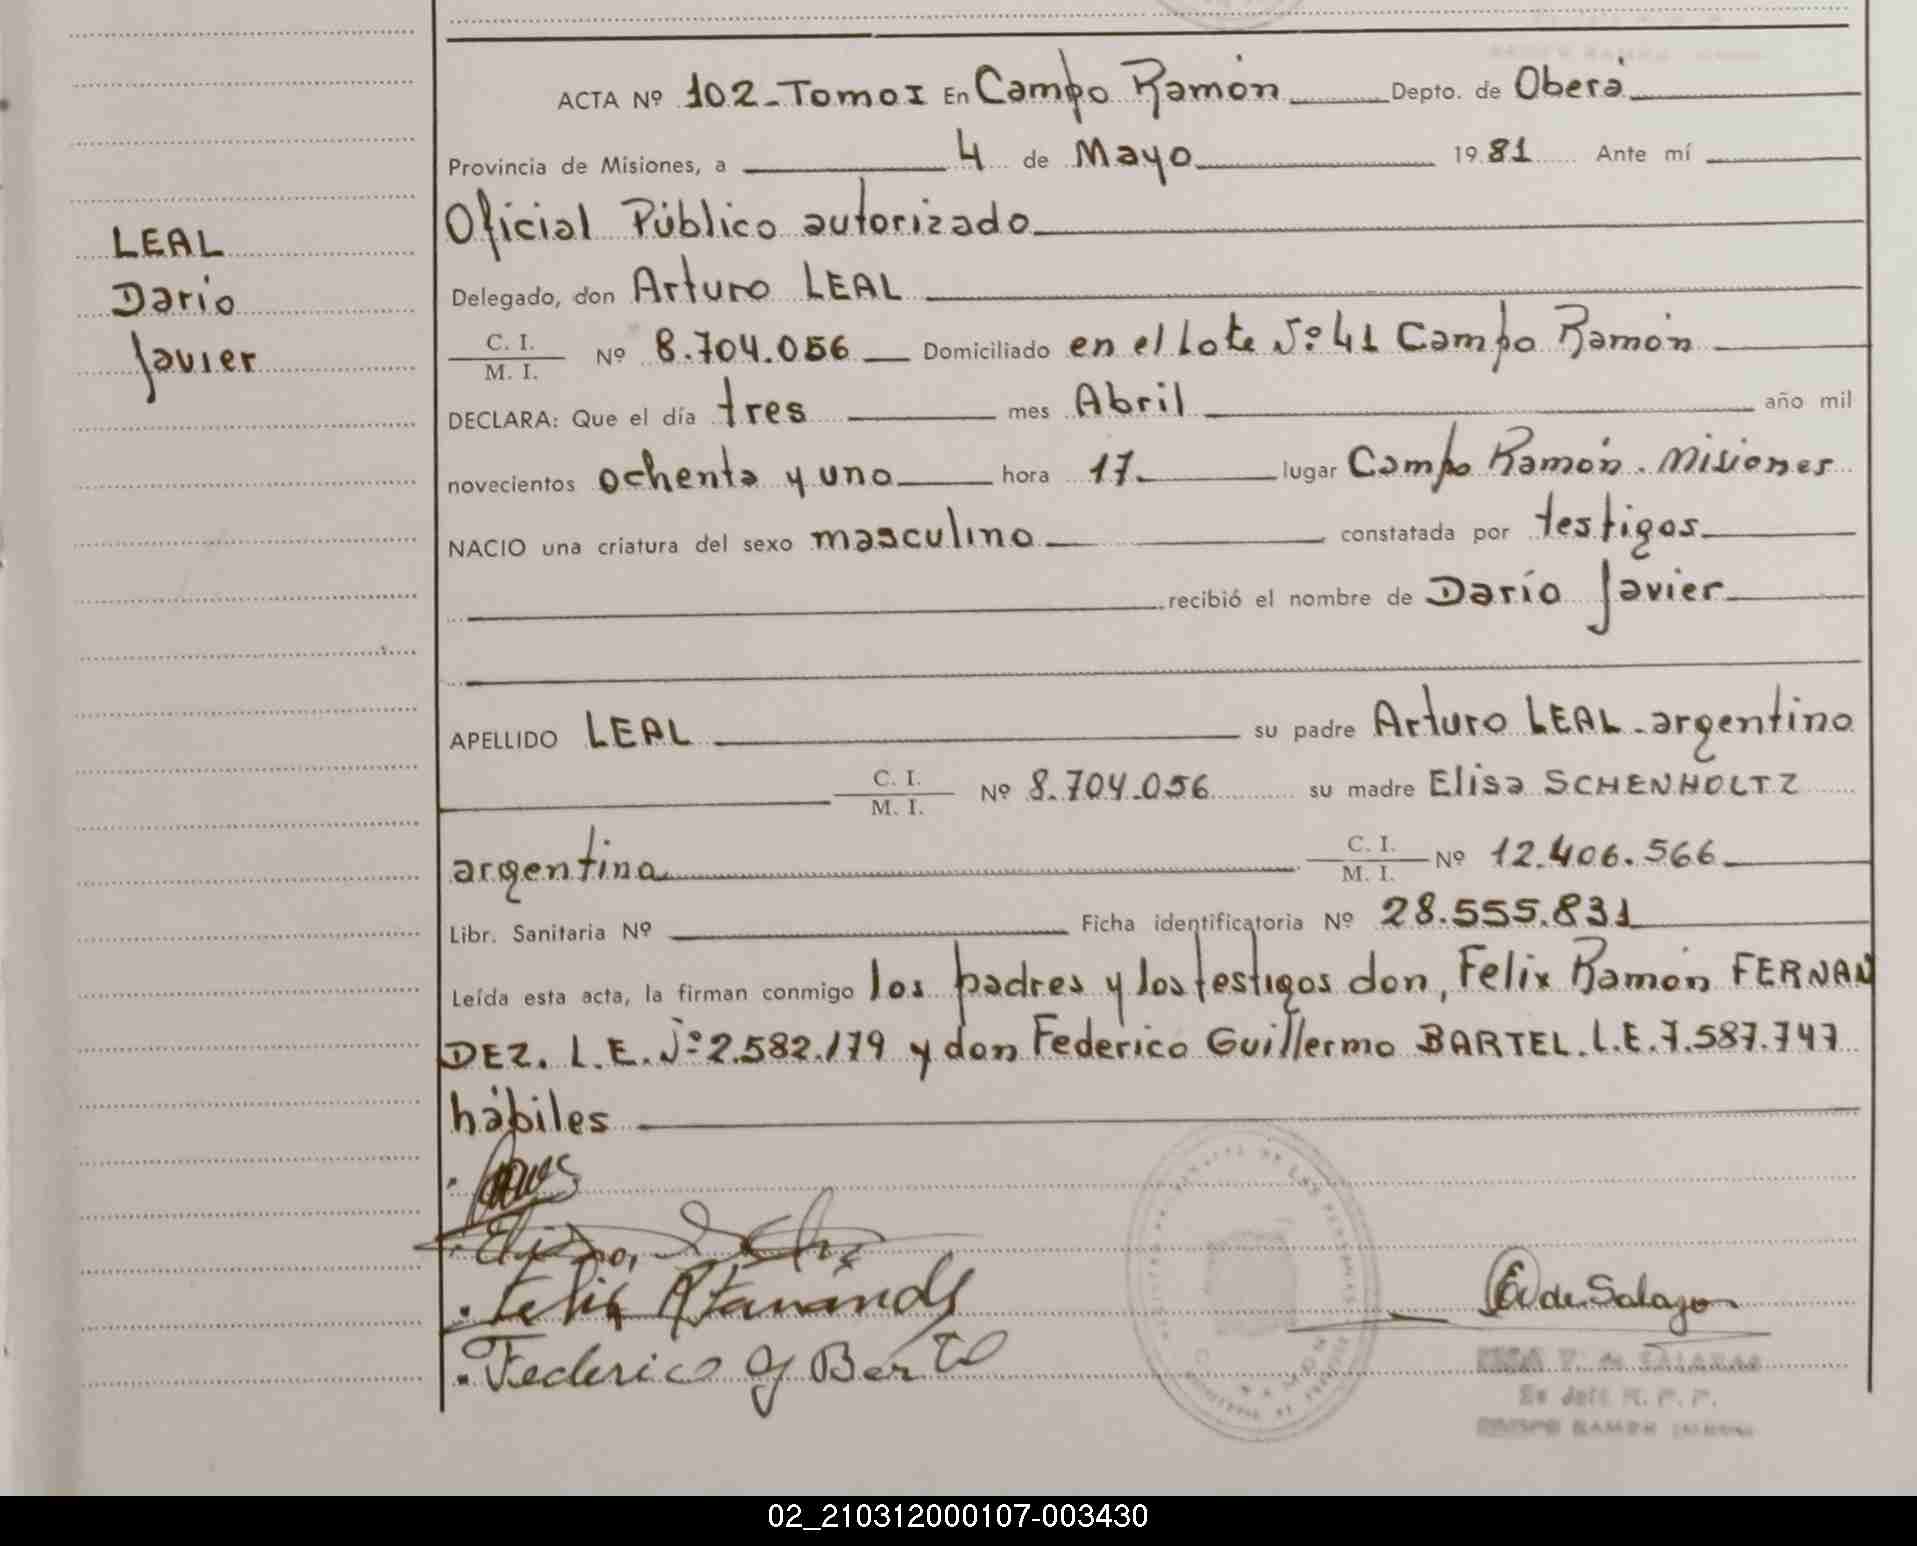 ACTA Nº 102-Tomo I En Campo Ramón Depto. de Oberá
Provincia de Misiones, a 4 de Mayo 1981 Ante mí
Oficial Público autorizado
LEAL
Darío
Javier
Delegado, don Arturo LEAL
C. I.
M. I. Nº 8.704.056 Domiciliado en el Lote Nº 41 Campo Ramón
DECLARA: Que el día tres mes Abril año mil
novecientos ochenta y uno hora 17 lugar Campo Ramón. Misiones
NACIO una criatura del sexo masculino constatada por testigos
recibió el nombre de Darío Javier
APELLIDO LEAL su padre Arturo LEAL - argentino
C. I.
M. I. Nº 8.704.056 su madre Elisa SCHENHOLTZ
argentina C. I.
M. I. Nº 12.406.566
Libr. Sanitaria Nº Ficha identificatoria Nº 28.555.831
Leída esta acta, la firman conmigo los padres y los testigos don, Felix Ramón FERNAN
DEZ. L.E. Nº 2.582.179 y don Federico Guillermo BARTEL. L.E. 7.587.747
hábiles
Federico G Bertel
de Salazar
02_210312000107-003430